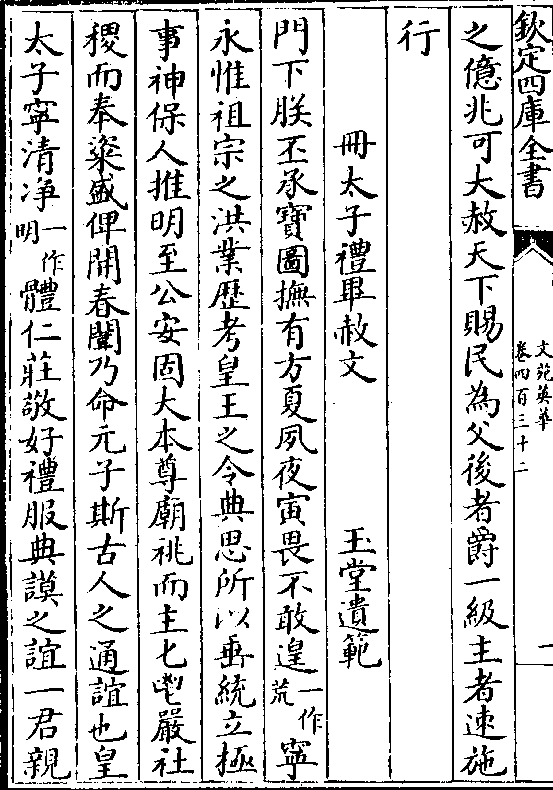 欽定四庫全書
文苑英華
卷四百三十二
一
之億兆可大赦天下賜民為父後者爵一級主者速施
行
冊太子禮畢赦文　玉堂遺範
門下朕丕承寶圖撫有方夏夙夜寅畏不敢遑一作荒寧
永惟祖宗之洪業歴考皇王之令典思所以垂統立極
事神保人推明至公安固大本尊廟祧而主匕鬯嚴社
稷而奉粢盛俾開春闈乃命元子斯古人之通誼也皇
太子寧清浄一作明體仁莊敬好禮服典謨之誼一君親